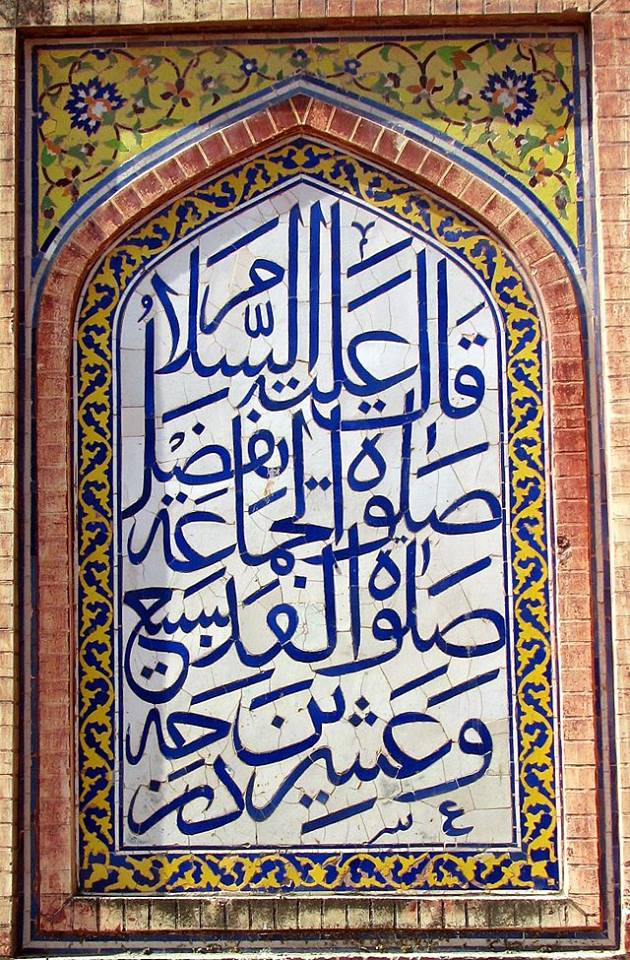 قال عليه السلام
صلوة الجماعه تفضل
صلوة الفذ بسبع
وعشرين درجه